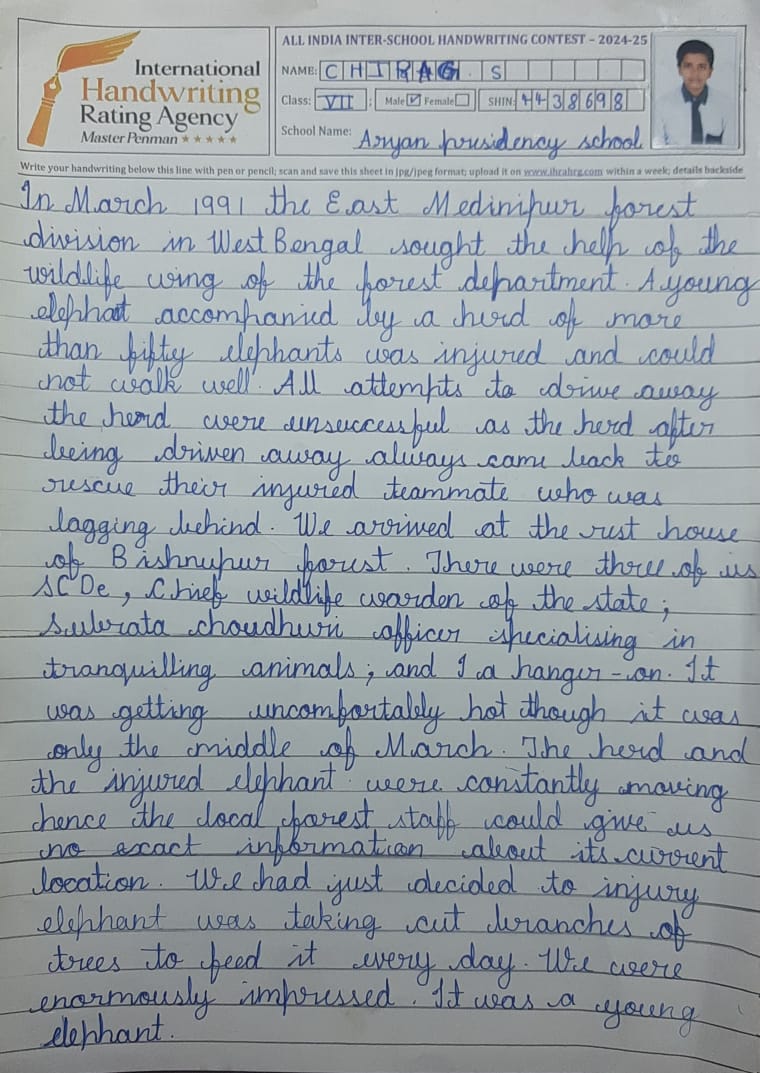 International
Handwriting
Rating Agency
Master Penman ★★★★★
ALL INDIA INTER-SCHOOL HANDWRITING CONTEST – 2024-25
NAME: CHIRAG. S
Class: VII : Male ☑ Female ☐ SHIN: 4438698
School Name: Aryan presidency school
Write your handwriting below this line with pen or pencil; scan and save this sheet in jpg/jpeg format; upload it on www.ihrahrg.com within a week; details backside
In March 1991 the East Medinipur forest
division in West Bengal sought the help of the
wildlife wing of the forest department. A young
elephat accompanied by a herd of more
than fifty elephants was injured and could
not walk well. All attempts to drive away
the herd were unsuccessful as the herd after
being driven away always came back to
rescue their injured teammate who was
lagging behind. We arrived at the rest house
of Bishnupur forest. There were three of us
SC De, Chief wildlife warden of the state;
Subrata choudhuri officer specialising in
tranquilling animals; and I a hanger-on. It
was getting uncomfortably hot though it was
only the middle of March. The herd and
the injured elephant were constantly moving
hence the local forest staff could give us
no exact information about its current
location. We had just decided to injury
elephant was taking cut branches of
trees to feed it every day. We were
enormously impressed. It was a young
elephant.